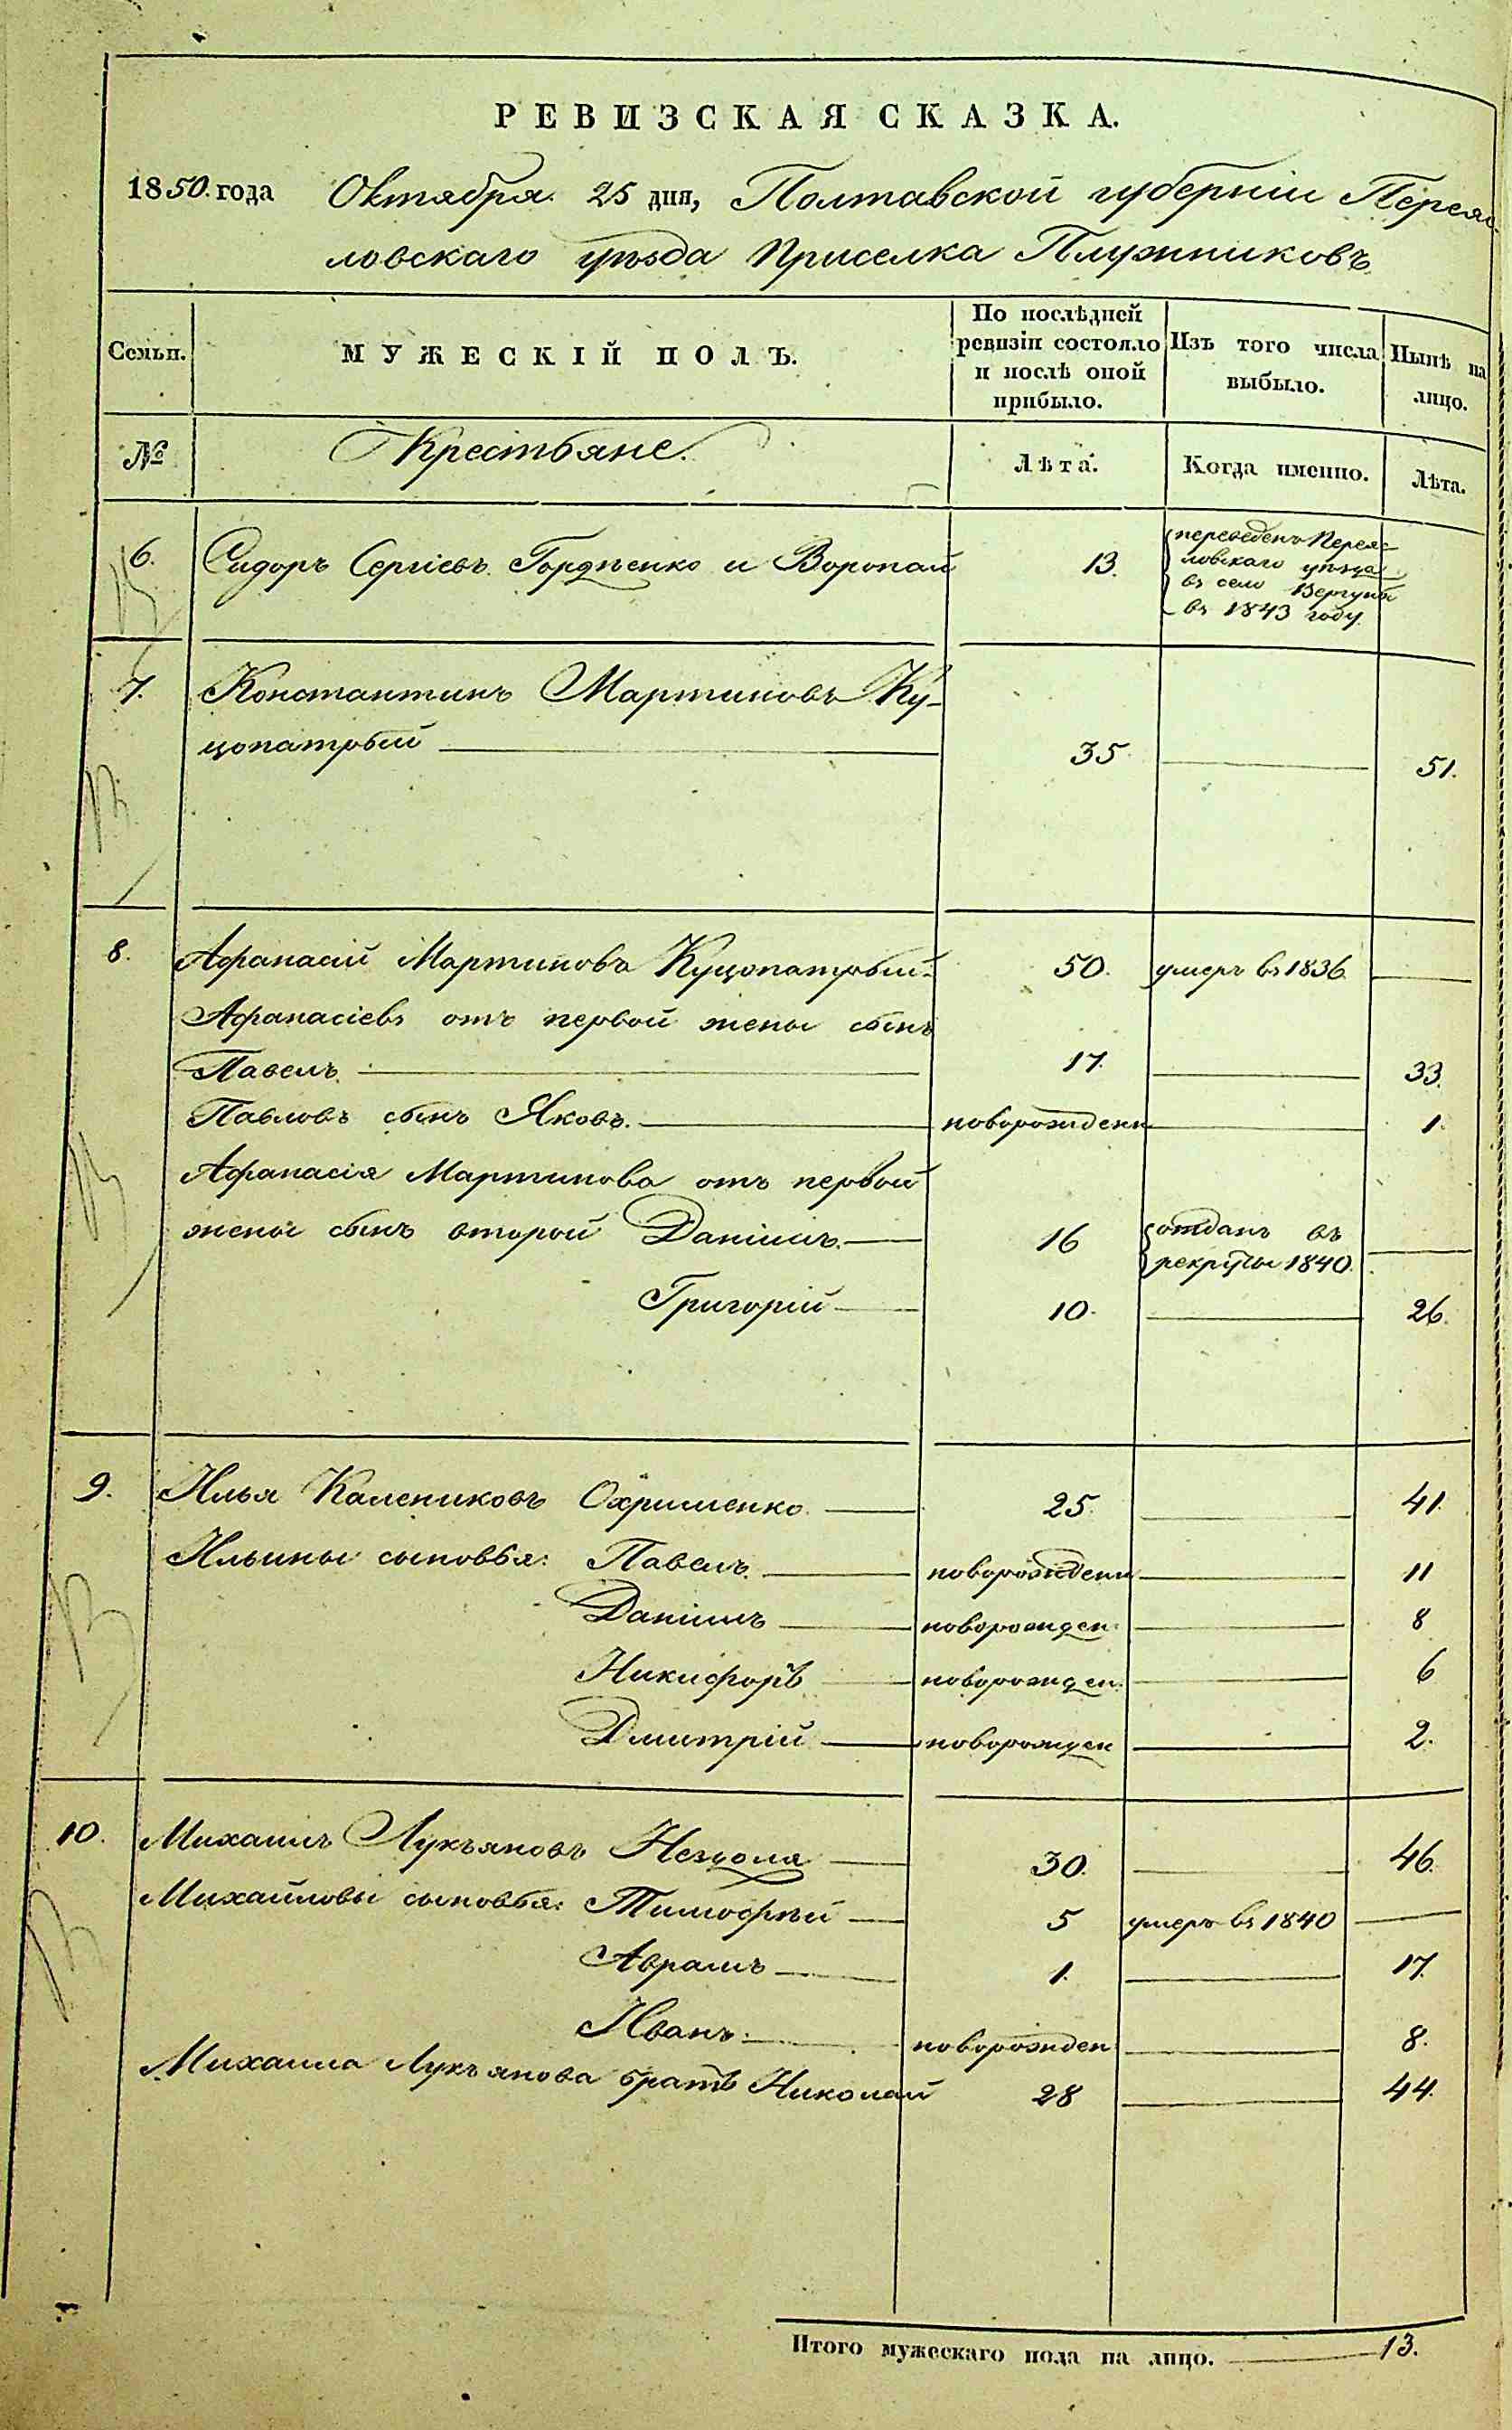 РЕВИЗСКАЯ СКАЗКА.
1850. года Октября 25 дня, Полтавской губерніи Переяс
ловскаго уѣзда Приселка Плужниковъ
Семьи. МУЖЕСКІЙ ПОЛЪ. По послѣдней ревизіи состояло и послѣ оной прибыло. Изъ того числа выбыло. Нынѣ на лицо.
№ Крестьяне. Лѣта. Когда именно. Лѣта.
6. Сидоръ Сергіевъ Гордѣенко и Воропай 13. переведенъ Переяс
ловскаго уѣзда
въ село Вергуны
въ 1843 году.
7. Константинъ Мартиновъ Ку-
цопатрый 35 51.
8. Афанасій Мартиновъ Куцопатрый. 50. умеръ въ 1836
Афанасіевъ отъ первой жены сынъ
Павелъ 17. 33.
Павловъ сынъ Яковъ. новорожденн 1.
Афанасія Мартинова отъ первой
жены сынъ второй Даніилъ. 16 отданъ въ
рекруты 1840.
Григорій 10. 26.
9. Илья Калениковъ Охрименко 25. 41.
Ильины сыновья: Павелъ новорожденн 11
Даніилъ новорожден. 8
Никифоръ новорожден. 6
Дмитрій новорожден 2.
10. Михаилъ Лукъяновъ 30. 46.
Михайловы сыновья: Тимофѣй 5 умеръ въ 1840
Аврамъ 1. 17.
Иванъ. новорожден 8.
Михаила Лукъянова братъ Николай 28 44.
Итого мужескаго пола на лицо. 13.